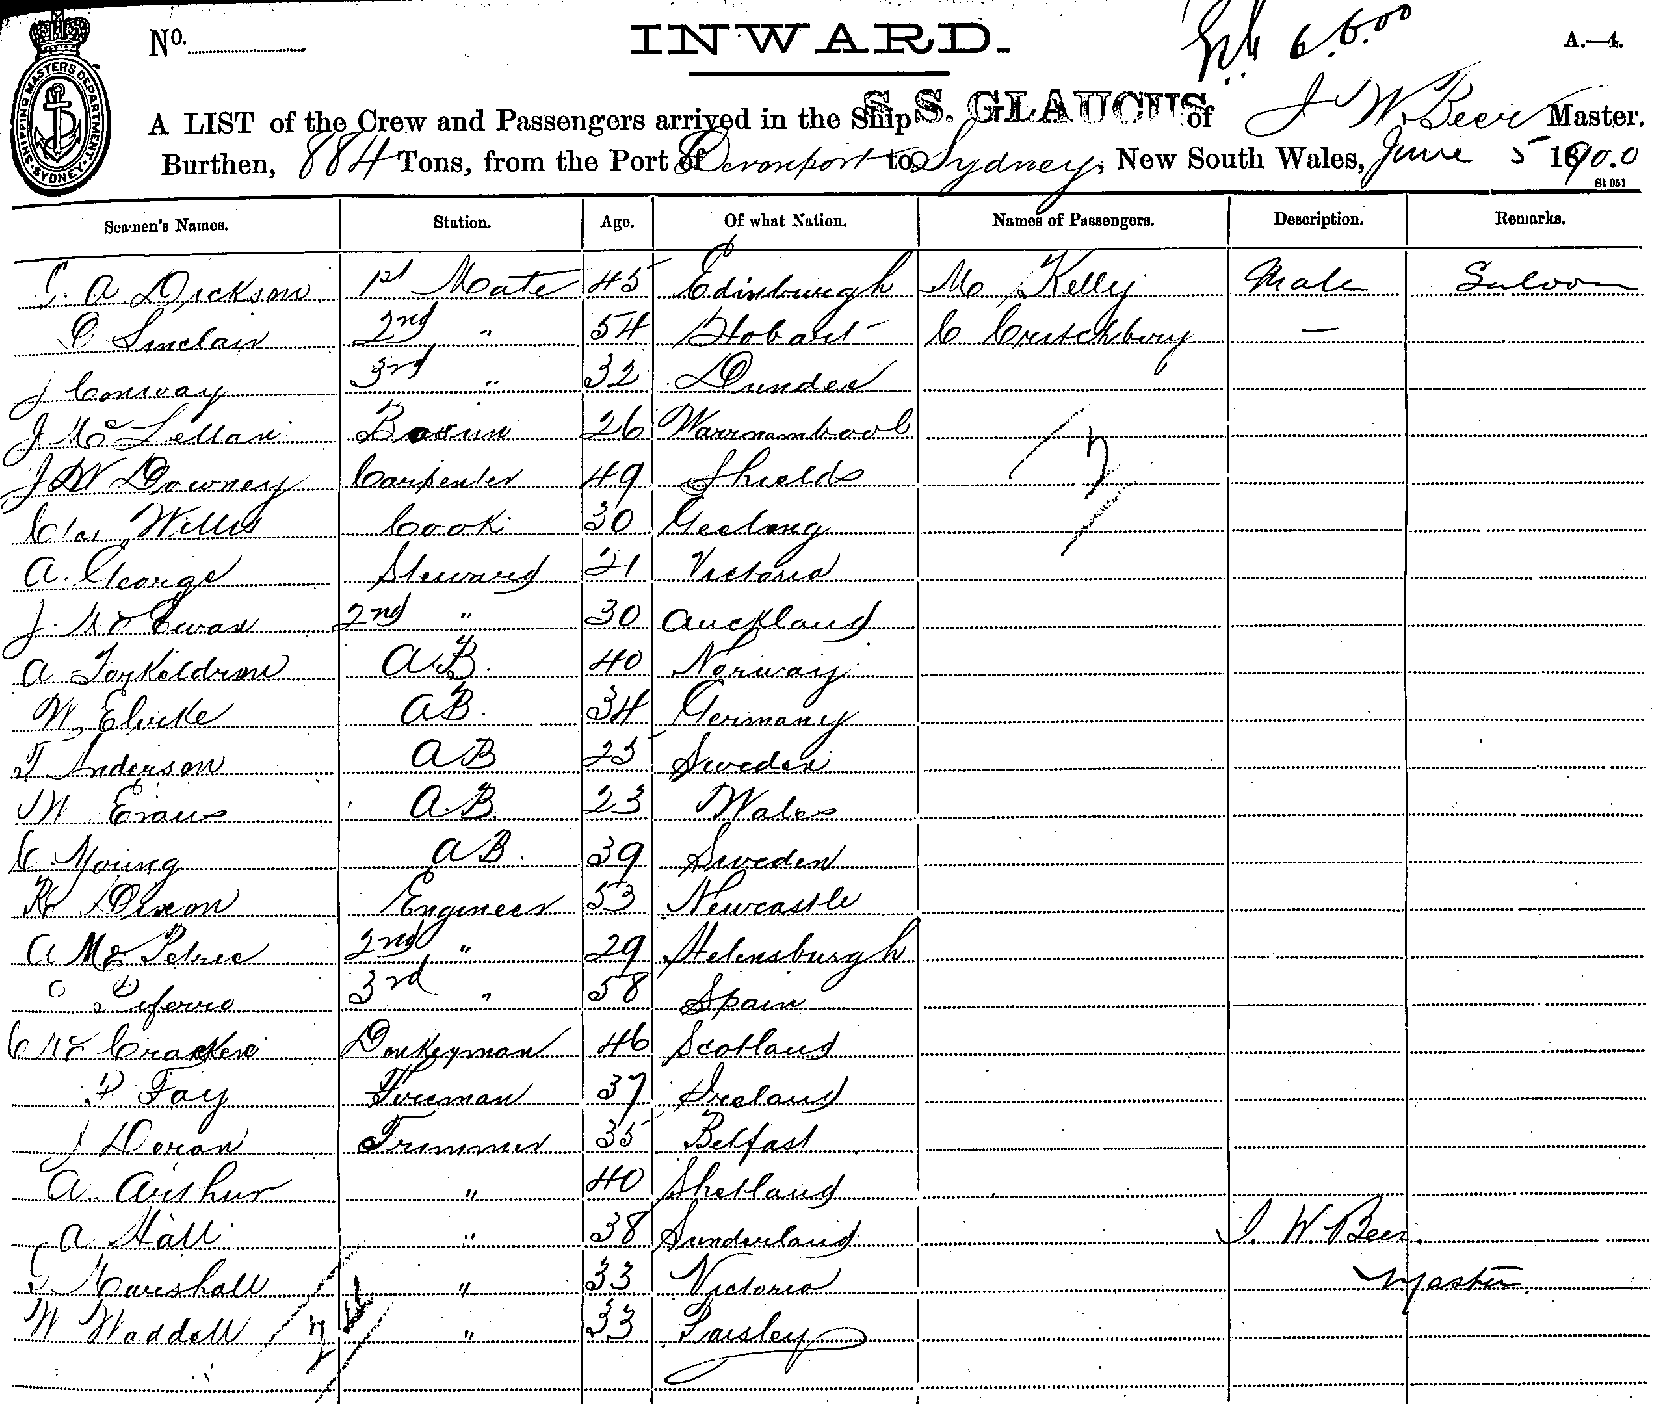 No.
INWARD.
6.6.00
A.—4.
SHIPPING MASTERS DEPARTMENT SYDNEY
A LIST of the Crew and Passengers arrived in the Ship S. S. GLAUCUS of J W. Beer Master.
Burthen, 884 Tons, from the Port of Devonport to Sydney, New South Wales, June 5 1900
St 051
Seamen's Names. Station. Age. Of what Nation. Names of Passengers. Description. Remarks.
A Dickson 1st Mate 45 Edinburgh M Kelly Male Saloon
Sinclair 2nd " 54 Hobart C Crutchbury —
J Conway 3rd " 32 Dundee
J McLellan Bosun 26 Warrnambool
J W Downey Carpenter 49 Shields
Chas Willis Cook 30 Geelong
A. George Steward 21 Victoria
J. McEwan 2nd " 30 Auckland
A Torkeldson A.B. 40 Norway
W Elvike AB. 34 Germany
T Anderson AB 25 Sweden
M Evans A.B. 23 Wales
C Young AB. 39 Sweden
Dixon Engineer 53 Newcastle
A McPetrie 2nd " 29 Helensburgh
3rd " 58 Spain
C McCracken Donkeyman 46 Scotland
P Fay Fireman 37 Ireland
J Doran Trimmer 35 Belfast
A. Arthur " 40 Shetland
A Hall " 38 Sunderland J. W. Beer.
Marshall " 33 Victoria Master
W Waddell " 33 Paisley